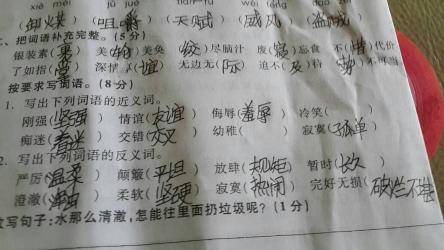 xiè mèi jǔ jué tiān fù wēi fēng
(卸妆) (咀嚼) (天赋) (威风)
二、把词语补充完整。(5分)
银装素(裹) 美(轮)美奂 (绞)尽脑汁 废(寝)忘食 不(惜)代价
了如指(掌) 深情(厚)(谊) 无边无(际) 迫不(及)待 (势)不可当
按要求写词语。(8分)
1. 写出下列词语的近义词。
刚强(坚强) 情谊(友谊) 侮辱(羞辱) 冷笑(
痴迷(着迷) 交错(交叉) 幼稚( ) 寂寞(孤单)
2. 写出下列词语的反义词。
严厉(温柔) 颠簸(平坦) 放肆(规矩) 暂时(长久)
澄澈(浑浊) 柔软(坚硬) 寂寞(热闹) 完好无损(破烂不堪
改写句子:水那么清澈,怎能往里面扔垃圾呢?(1分)